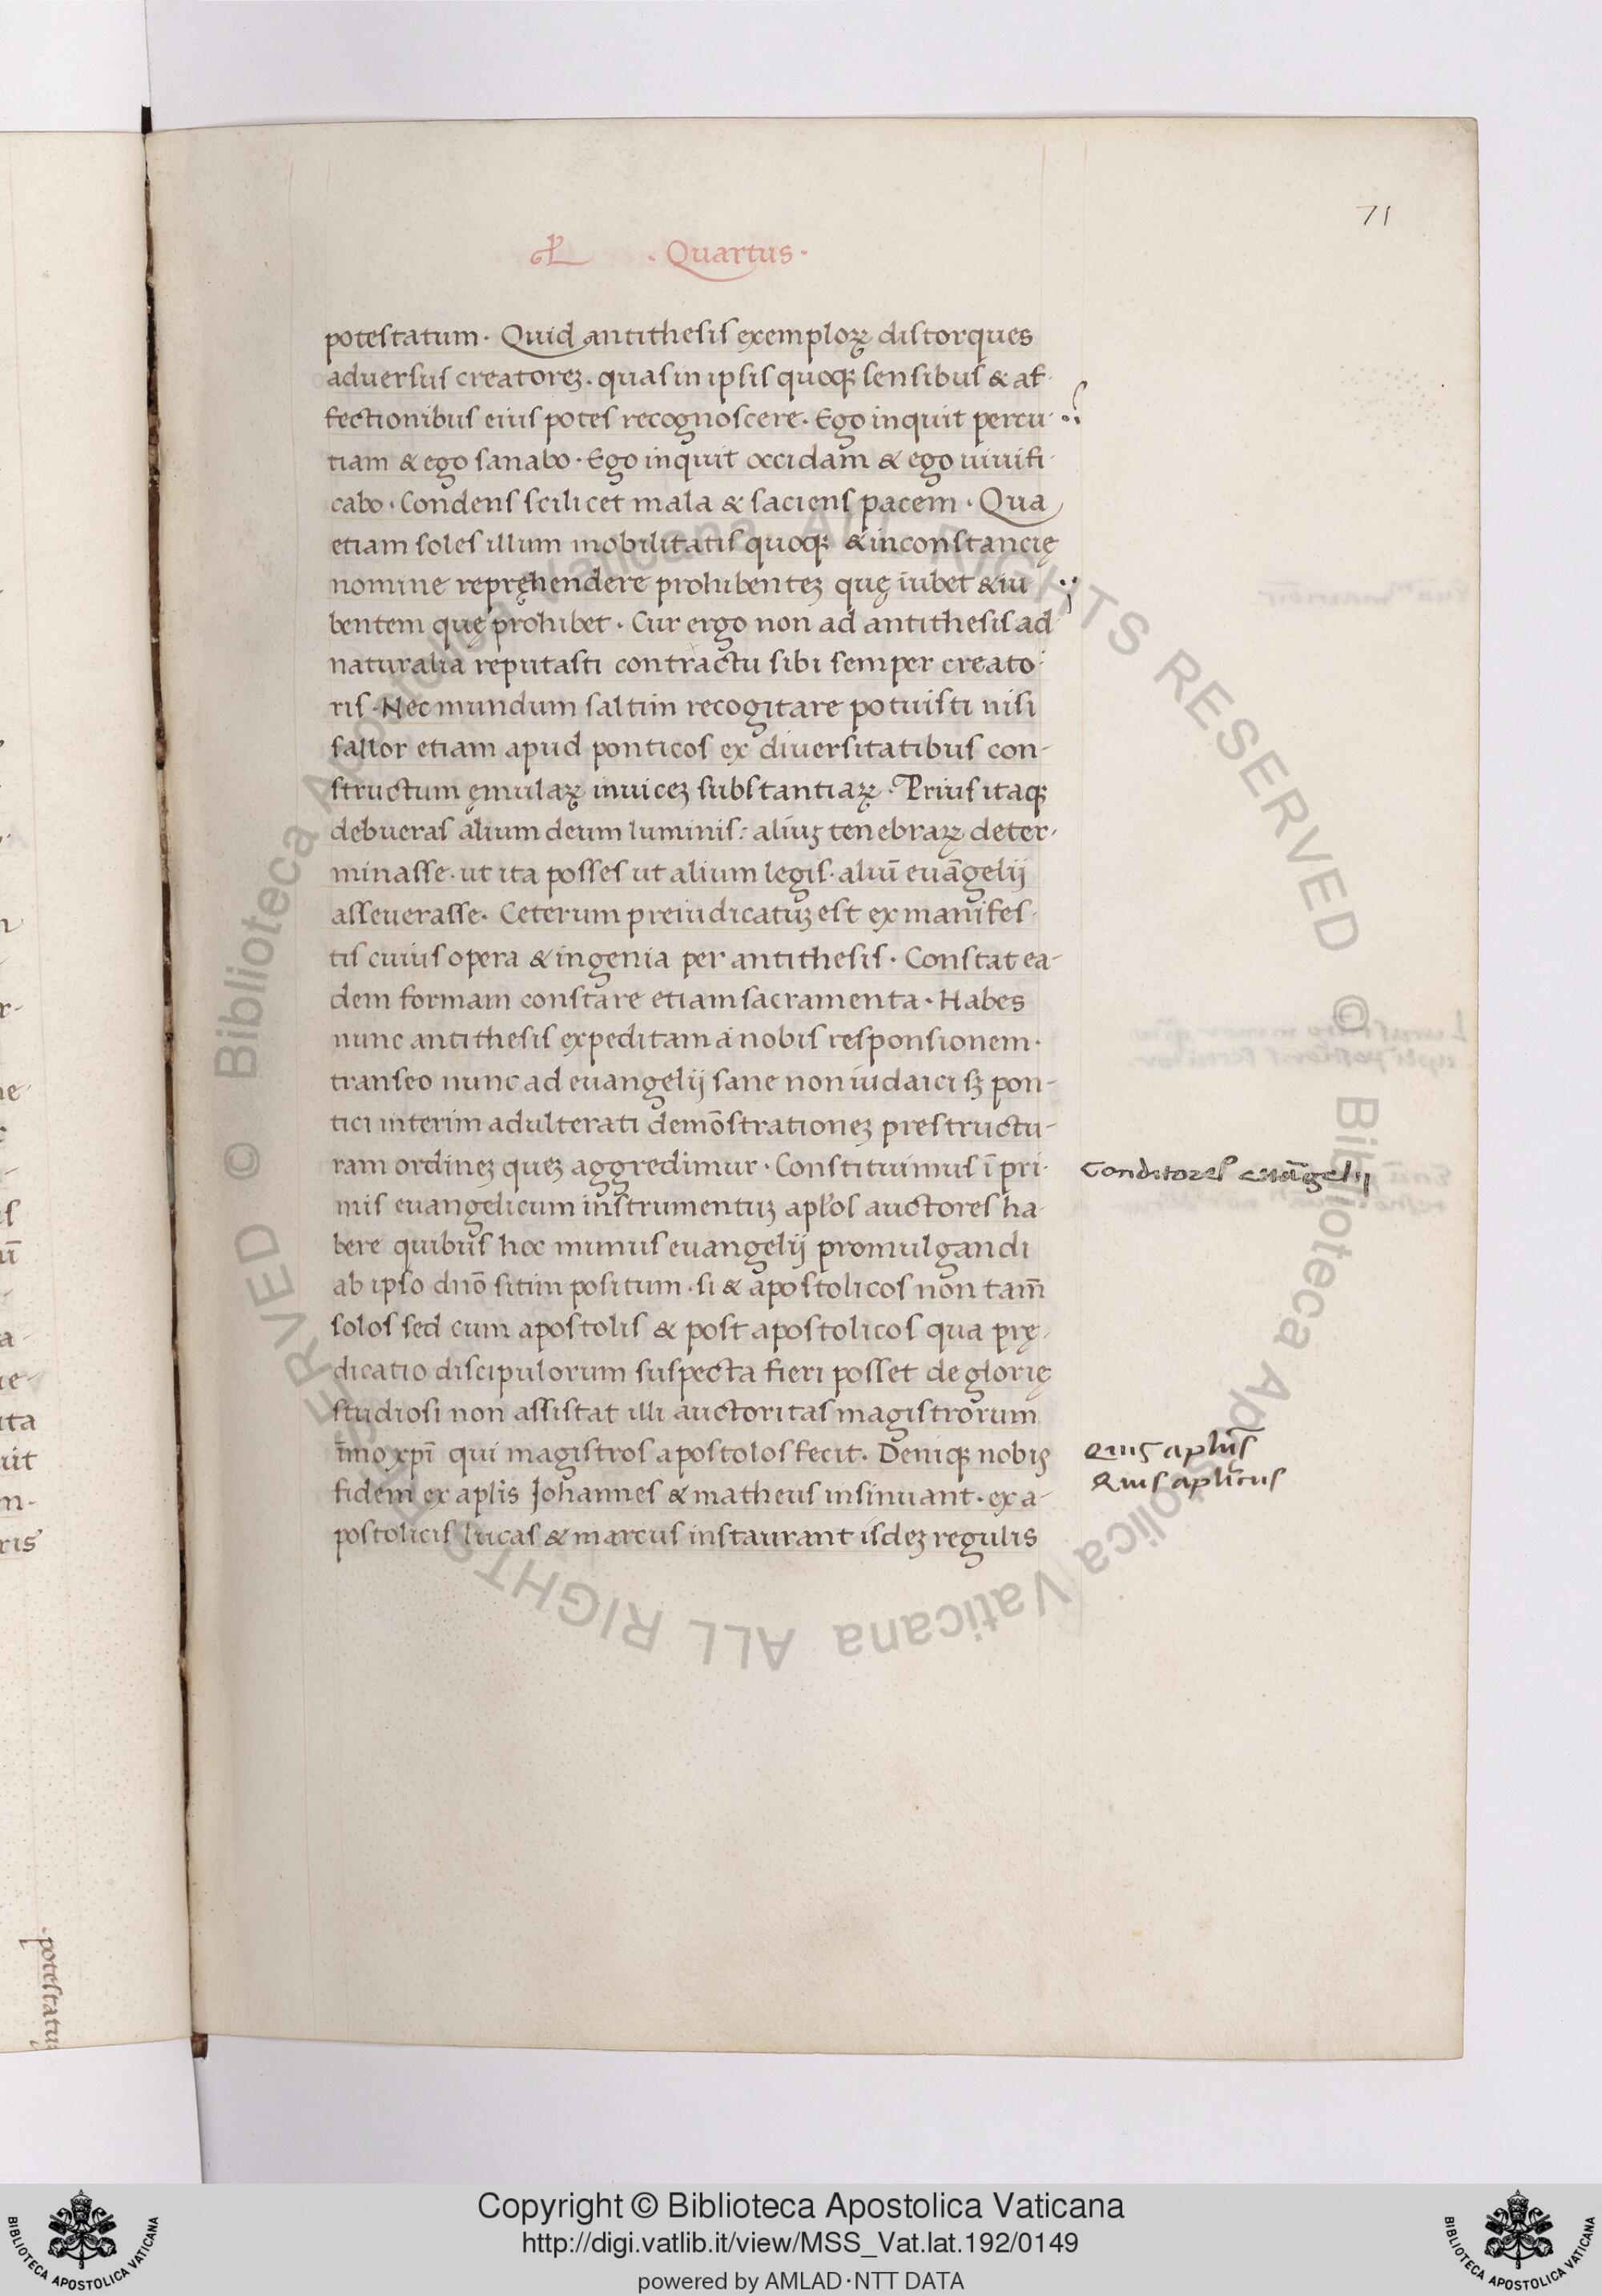 71
· Quartus ·
potestatum · Quid antithesis exemploꝝ distorques
aduersus creatoreʒ · quas in ipsis quoqꝫ sensibus & af-
fectionibus eius potes recognoscere · Ego inquit percu-
tiam & ego sanabo · Ego inquit occidam & ego uiuifi-
cabo · Condens scilicet mala & faciens pacem · Qua
etiam soles illum mobilitatis quoqꝫ & inconstancię
nomine repręhendere prohibenteʒ quę iubet & iu
bentem quę prohibet · Cur ergo non ad antithesis ad
naturalia reputasti contractu sibi semper creato-
ris · Nec mundum saltim recogitare potuisti nisi
fallor etiam apud ponticos ex diuersitatibus con-
structum ęmulaꝝ inuiceʒ substantiaꝝ · Prius itaqꝫ
debueras alium deum luminis : aliuʒ tenebraꝝ deter-
minasse · ut ita posses ut alium legis · aliū euāgelij
asseuerasse · Ceterum preiudicatuʒ est ex manifes-
tis cuius opera & ingenia per antithesis · Constat ea-
dem formam constare etiam sacramenta · Habes
nunc antithesis expeditam a nobis responsionem ·
transeo nunc ad euangelij sane non iudaici sʒ pon-
tici interim adulterati demōstrationeʒ prestructu-
ram ordineʒ queʒ aggredimur · Constituimus ī pri-
mis euangelicum instrumentuʒ apl'os auctores ha-
bere quibus hoc munus euangelij promulgandi
ab ipso dn̄o sitim positum · si & apostolicos non tam̄
solos sed cum apostolis & post apostolicos qua prę-
dicatio discipulorum suspecta fieri posset de glorię
studiosi non assistat illi auctoritas magistrorum
īmo xp̄i qui magistros apostolos fecit · Deniqꝫ nobis
fidem ex apl'is Johannes & matheus insinuant · ex a-
postolicis lucas & marcus instaurant isdeʒ regulis
Conditores euāgelij
potestatu
Copyright © Biblioteca Apostolica Vaticana
http://digi.vatlib.it/view/MSS_Vat.lat.192/0149
powered by AMLAD·NTT DATA
BIBLIOTECA APOSTOLICA VATICANA
BIBLIOTECA APOSTOLICA VATICANA
© Biblioteca Apostolica Vaticana ALL RIGHTS RESERVED
© Biblioteca Apostolica Vaticana ALL RIGHTS RESERVED